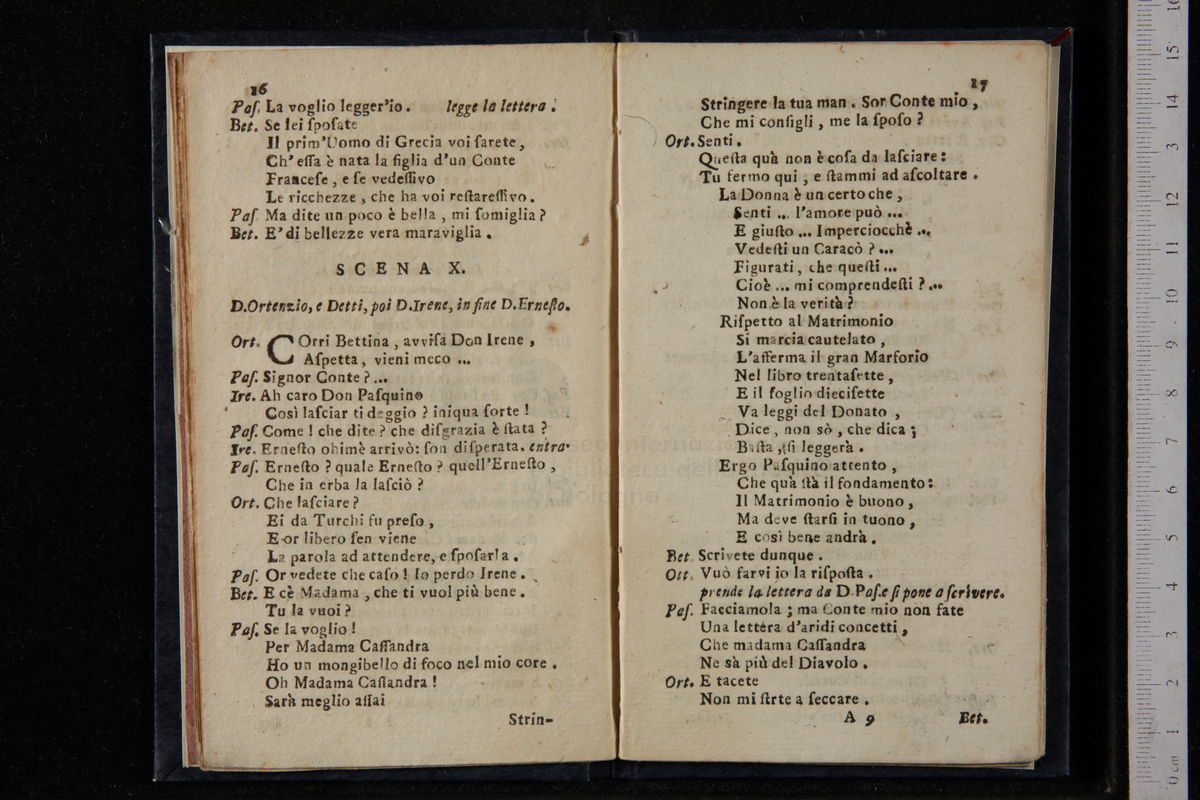 16
Paſ. La voglio legger'io. legge la lettera.
Bet. Se lei ſpoſate
Il prim'Uomo di Grecia voi ſarete,
Ch'eſſa è nata la figlia d'un Conte
Franceſe, e ſe vedeſſivo
Le ricchezze, che ha voi reſtareſſivo.
Paſ. Ma dite un poco è bella, mi ſomiglia?
Bet. E' di bellezze vera maraviglia.
SCENA X.
D.Ortenzio, e Detti, poi D.Irene, in fine D.Erneſto.
Ort. COrri Bettina, avviſa Don Irene,
Aſpetta, vieni meco ...
Paſ. Signor Conte? ...
Ire. Ah caro Don Paſquino
Così laſciar ti deggio? iniqua ſorte!
Paſ. Come! che dite? che diſgrazia è ſtata?
Ire. Erneſto ohimè arrivò: ſon diſperata. entra.
Paſ. Erneſto? quale Erneſto? quell'Erneſto,
Che in erba la laſciò?
Ort. Che laſciare?
Ei da Turchi fu preſo,
E or libero ſen viene
La parola ad attendere, e ſpoſarla.
Paſ. Or vedete che caſo! Io perdo Irene.
Bet. E cè Madama, che ti vuol più bene.
Tu la vuoi?
Paſ. Se la voglio!
Per Madama Caſſandra
Ho un mongibello di foco nel mio core.
Oh Madama Caſſandra!
Sarà meglio aſſai
Strin-
17
Stringere la tua man. Sor Conte mio,
Che mi conſigli, me la ſpoſo?
Ort. Senti.
Queſta quà non è coſa da laſciare:
Tu fermo qui, e ſtammi ad aſcoltare.
La Donna è un certo che,
Senti ... l'amore può ...
E giuſto ... Imperciocchè ...
Vedeſti un Caracò? ...
Figurati, che queſti ...
Cioè ... mi comprendeſti? ...
Non è la verità?
Riſpetto al Matrimonio
Si marcia cautelato,
L'afferma il gran Marforio
Nel libro trentaſette,
E il foglio dieciſette
Va leggi del Donato,
Dice, non sò, che dica;
Baſta, ſi leggerà.
Ergo Paſquino attento,
Che quà ſtà il fondamento:
Il Matrimonio è buono,
Ma deve ſtarſi in tuono,
E così bene andrà.
Bet. Scrivete dunque.
Ott. Vuò farvi io la riſpoſta.
prende la lettera da D.Paſ.e ſi pone a ſcrivere.
Paſ. Facciamola; ma Conte mio non fate
Una lettera d'aridi concetti,
Che madama Caſſandra
Ne sà più del Diavolo.
Ort. E tacete
Non mi ſtrte a ſeccare.
A 9 Bet.